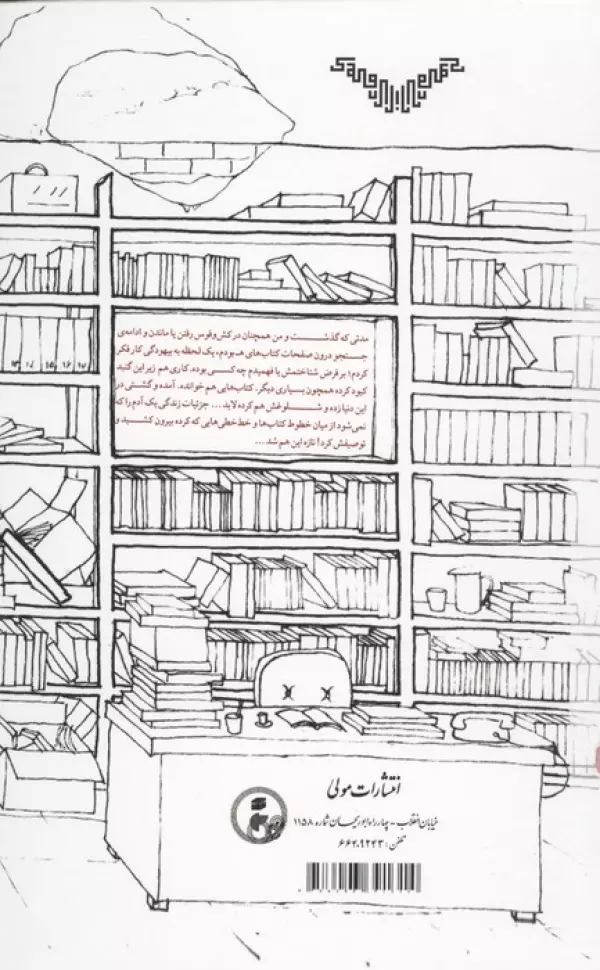 مدتی که گذشت و من همچنان در کش‌وقوس رفتن یا ماندن و ادامه‌ی
جستجو درون صفحات کتاب‌های هم بودم، یک لحظه به بیهودگی کار فکر
کردم! بر فرض شناختمش یا فهمیدم چه کسی بوده. کاری هم زیر این گنبد
کبود کرده همچون بسیاری دیگر. کتاب‌هایی هم خوانده. آمده و گشتی در
این دنیا زده و شلوغش هم کرده لابد... جزئیات زندگی یک آدم را که
نمی‌شود از میان خطوط کتاب‌ها و خط‌خطی‌هایی که کرده بیرون کشید و
توصیفش کرد! تازه این هم شد...
۱۵ ۱۶ ۱۷
انتشارات مولی
خیابان انقلاب - چهارراه ابوریحان شماره ۱۱۵۸
تلفن: ۶۶۴۰۹۲۴۳